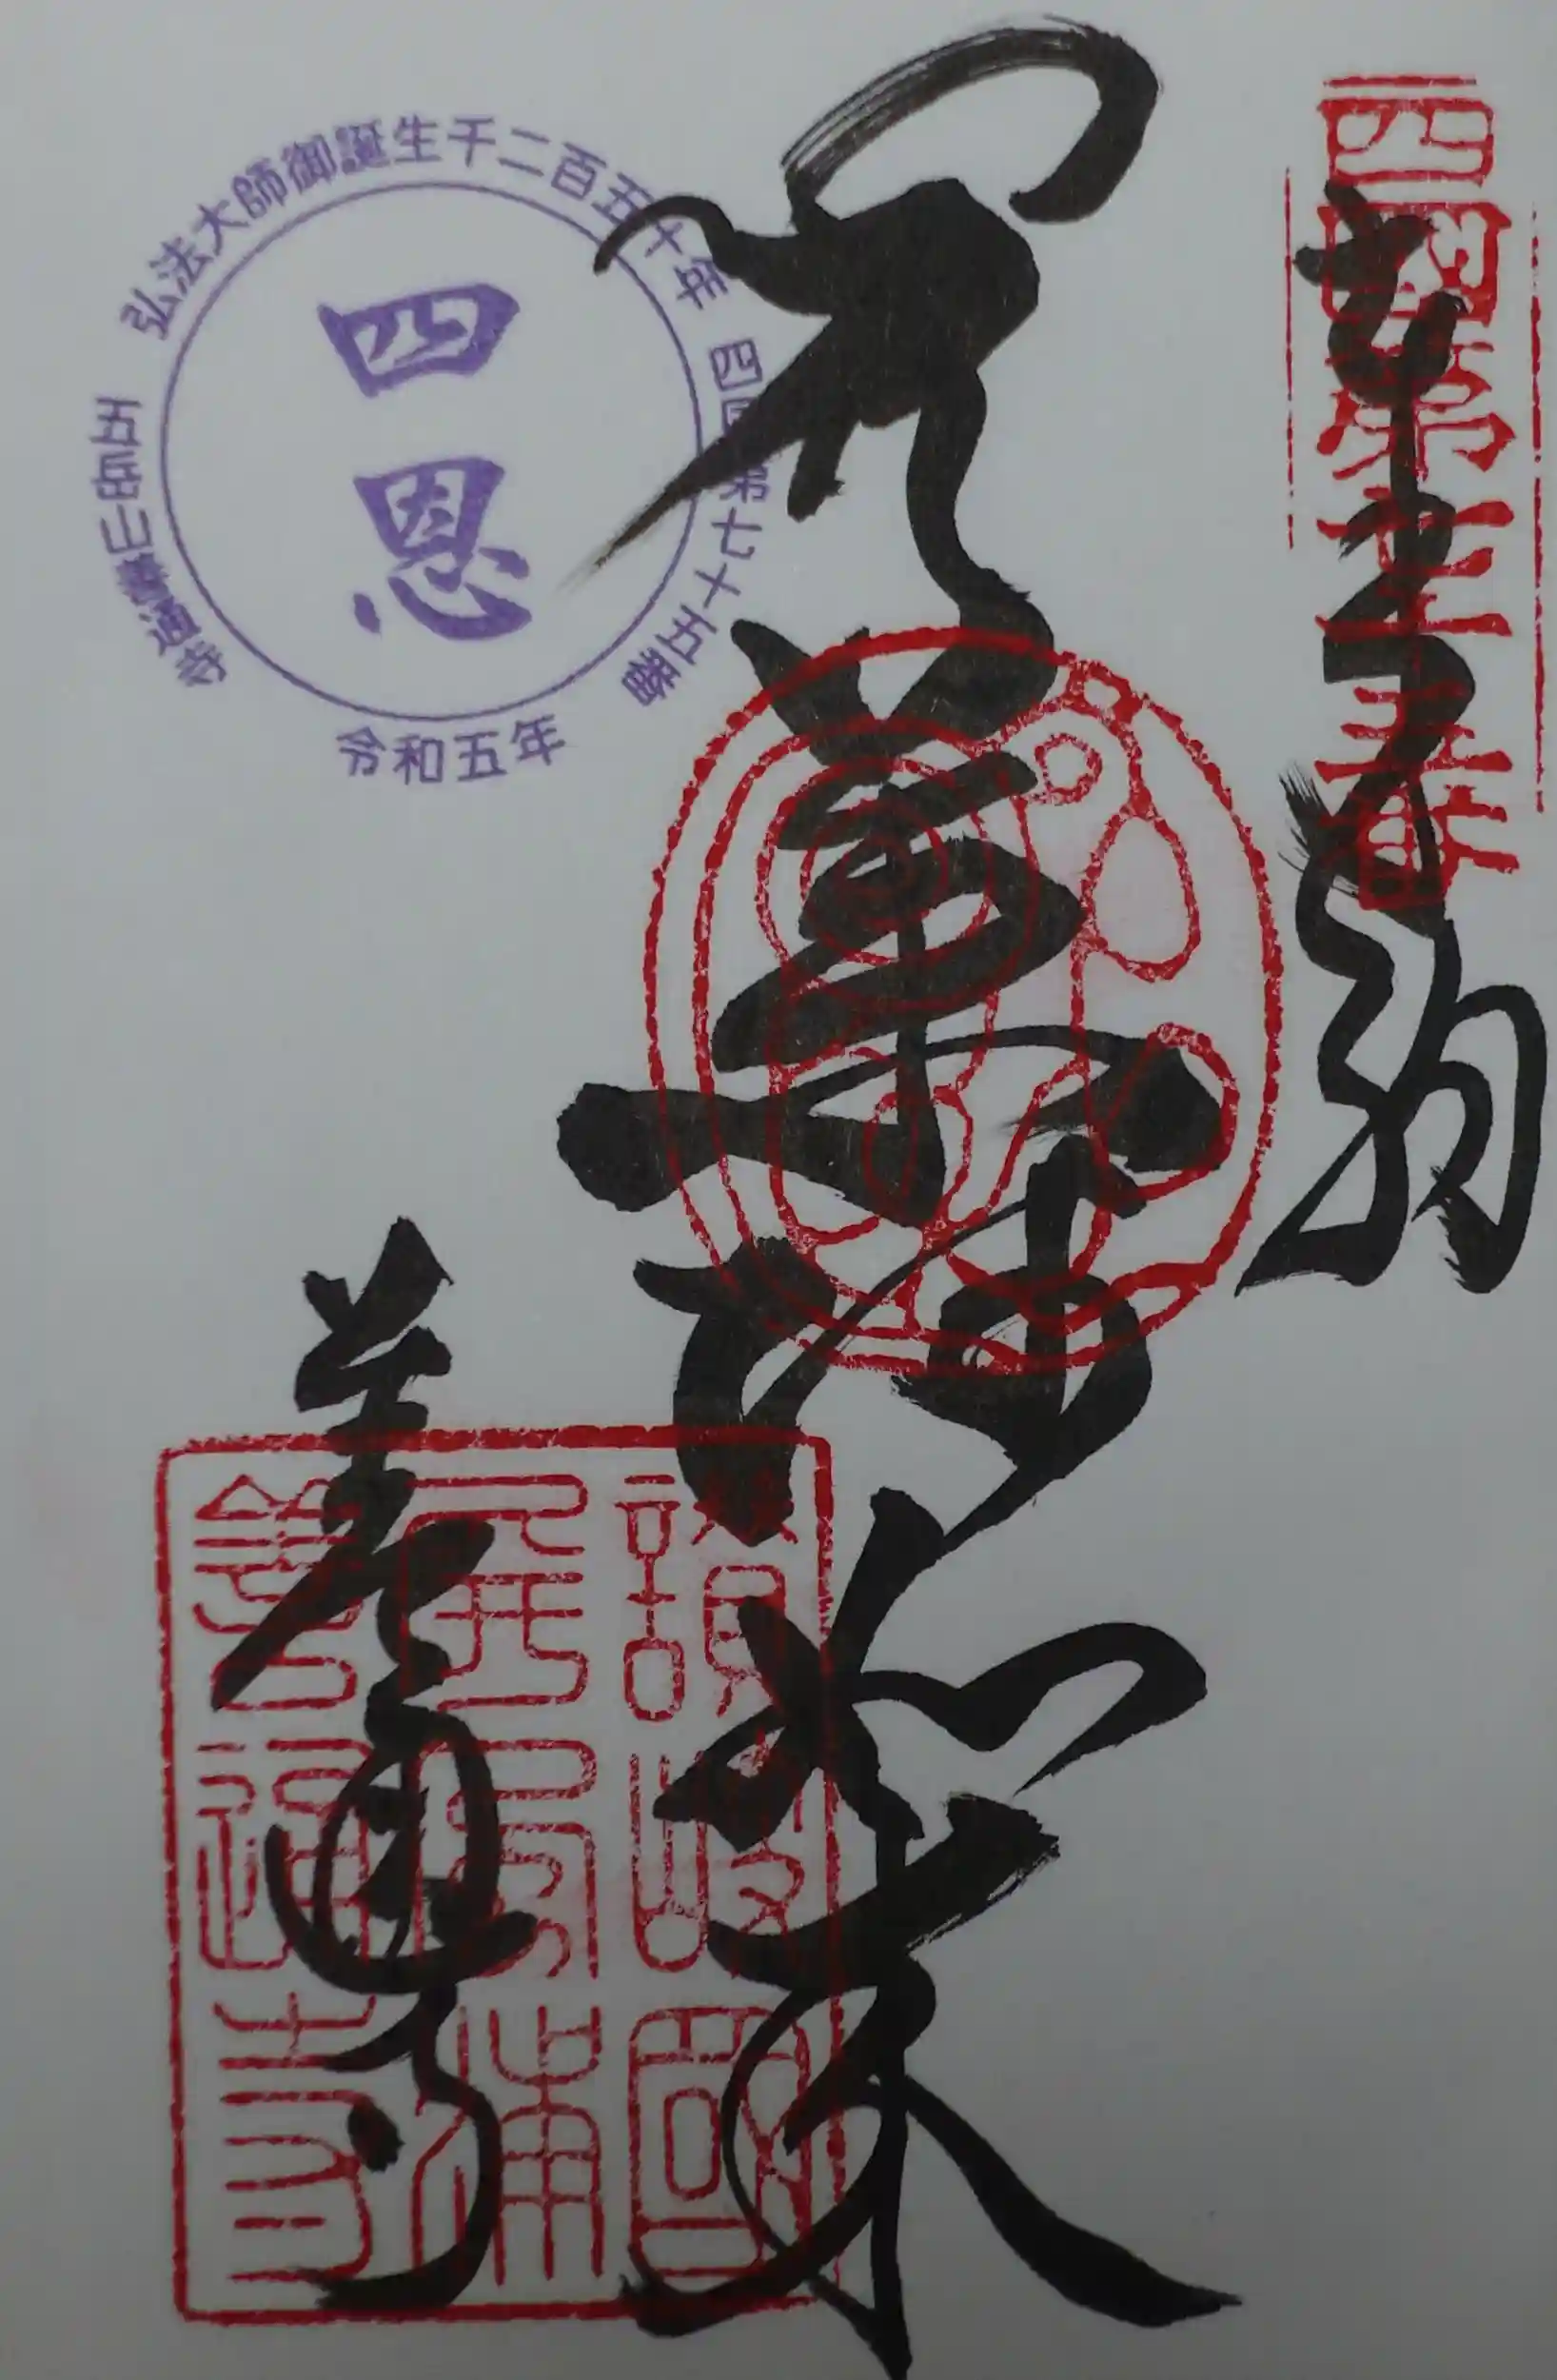 四國第七十五番
奉納
薬師如来
善通寺
弘法大師御誕生千二百五十年
四国第七十五番
令和五年
五岳山善通寺
四恩
讃岐國
屏風浦
善通寺